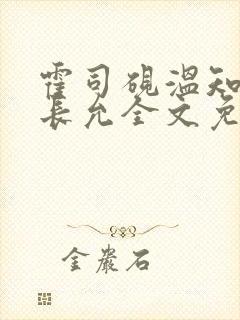 霍司砚温知
长允全文免
金岩石